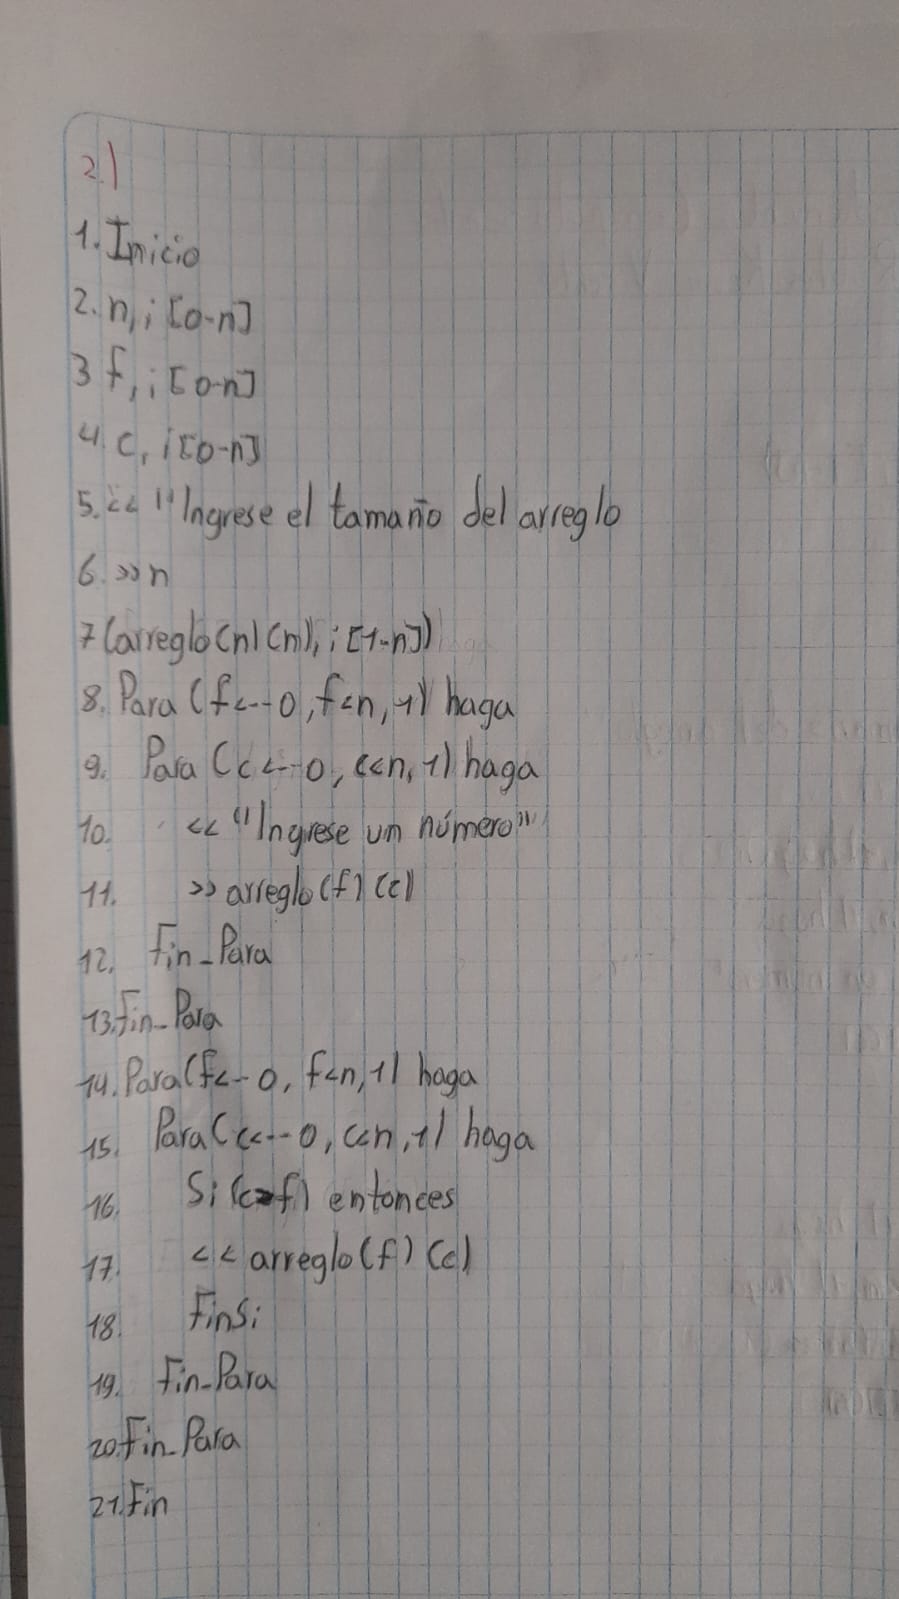 2.)
1. Inicio
2. n, i [0-n]
3 f, i [0-n]
4. c, i [0-n]
5. << "Ingrese el tamaño del arreglo
6. >> n
7 (arreglo(n)(n), i [1-n])
8. Para (f<--0, f<n, 1) haga
9. Para (c<--0, c<n, 1) haga
10. << "Ingrese un número"
11. >> arreglo(f)(c)
12. Fin_Para
13. Fin_Para
14. Para(f<--0, f<n, 1) haga
15. Para(c<--0, c<n, 1) haga
16. Si (c>f) entonces
17. << arreglo(f)(c)
18. FinSi
19. Fin_Para
20. Fin_Para
21. Fin